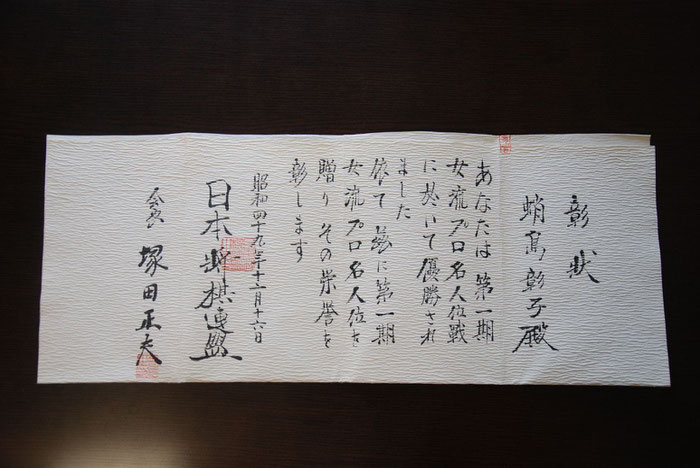 彰状
蛸島彰子殿
あなたは第一期
女流プロ名人位戦
に於いて優勝され
ました
依て茲に第一期
女流プロ名人位を
贈りその栄誉を
彰します
昭和四十九年十二月十六日
日本将棋連盟
会長 塚田正夫